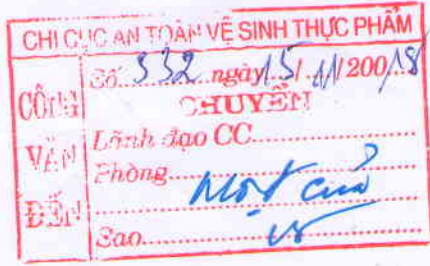 CHI CỤC AN TOÀN VỆ SINH THỰC PHẨM
CÔNG VĂN ĐẾN
Số 332 ngày 15/11/20018
CHUYỂN
Lãnh đạo CC
Phòng Một cửa
Sao